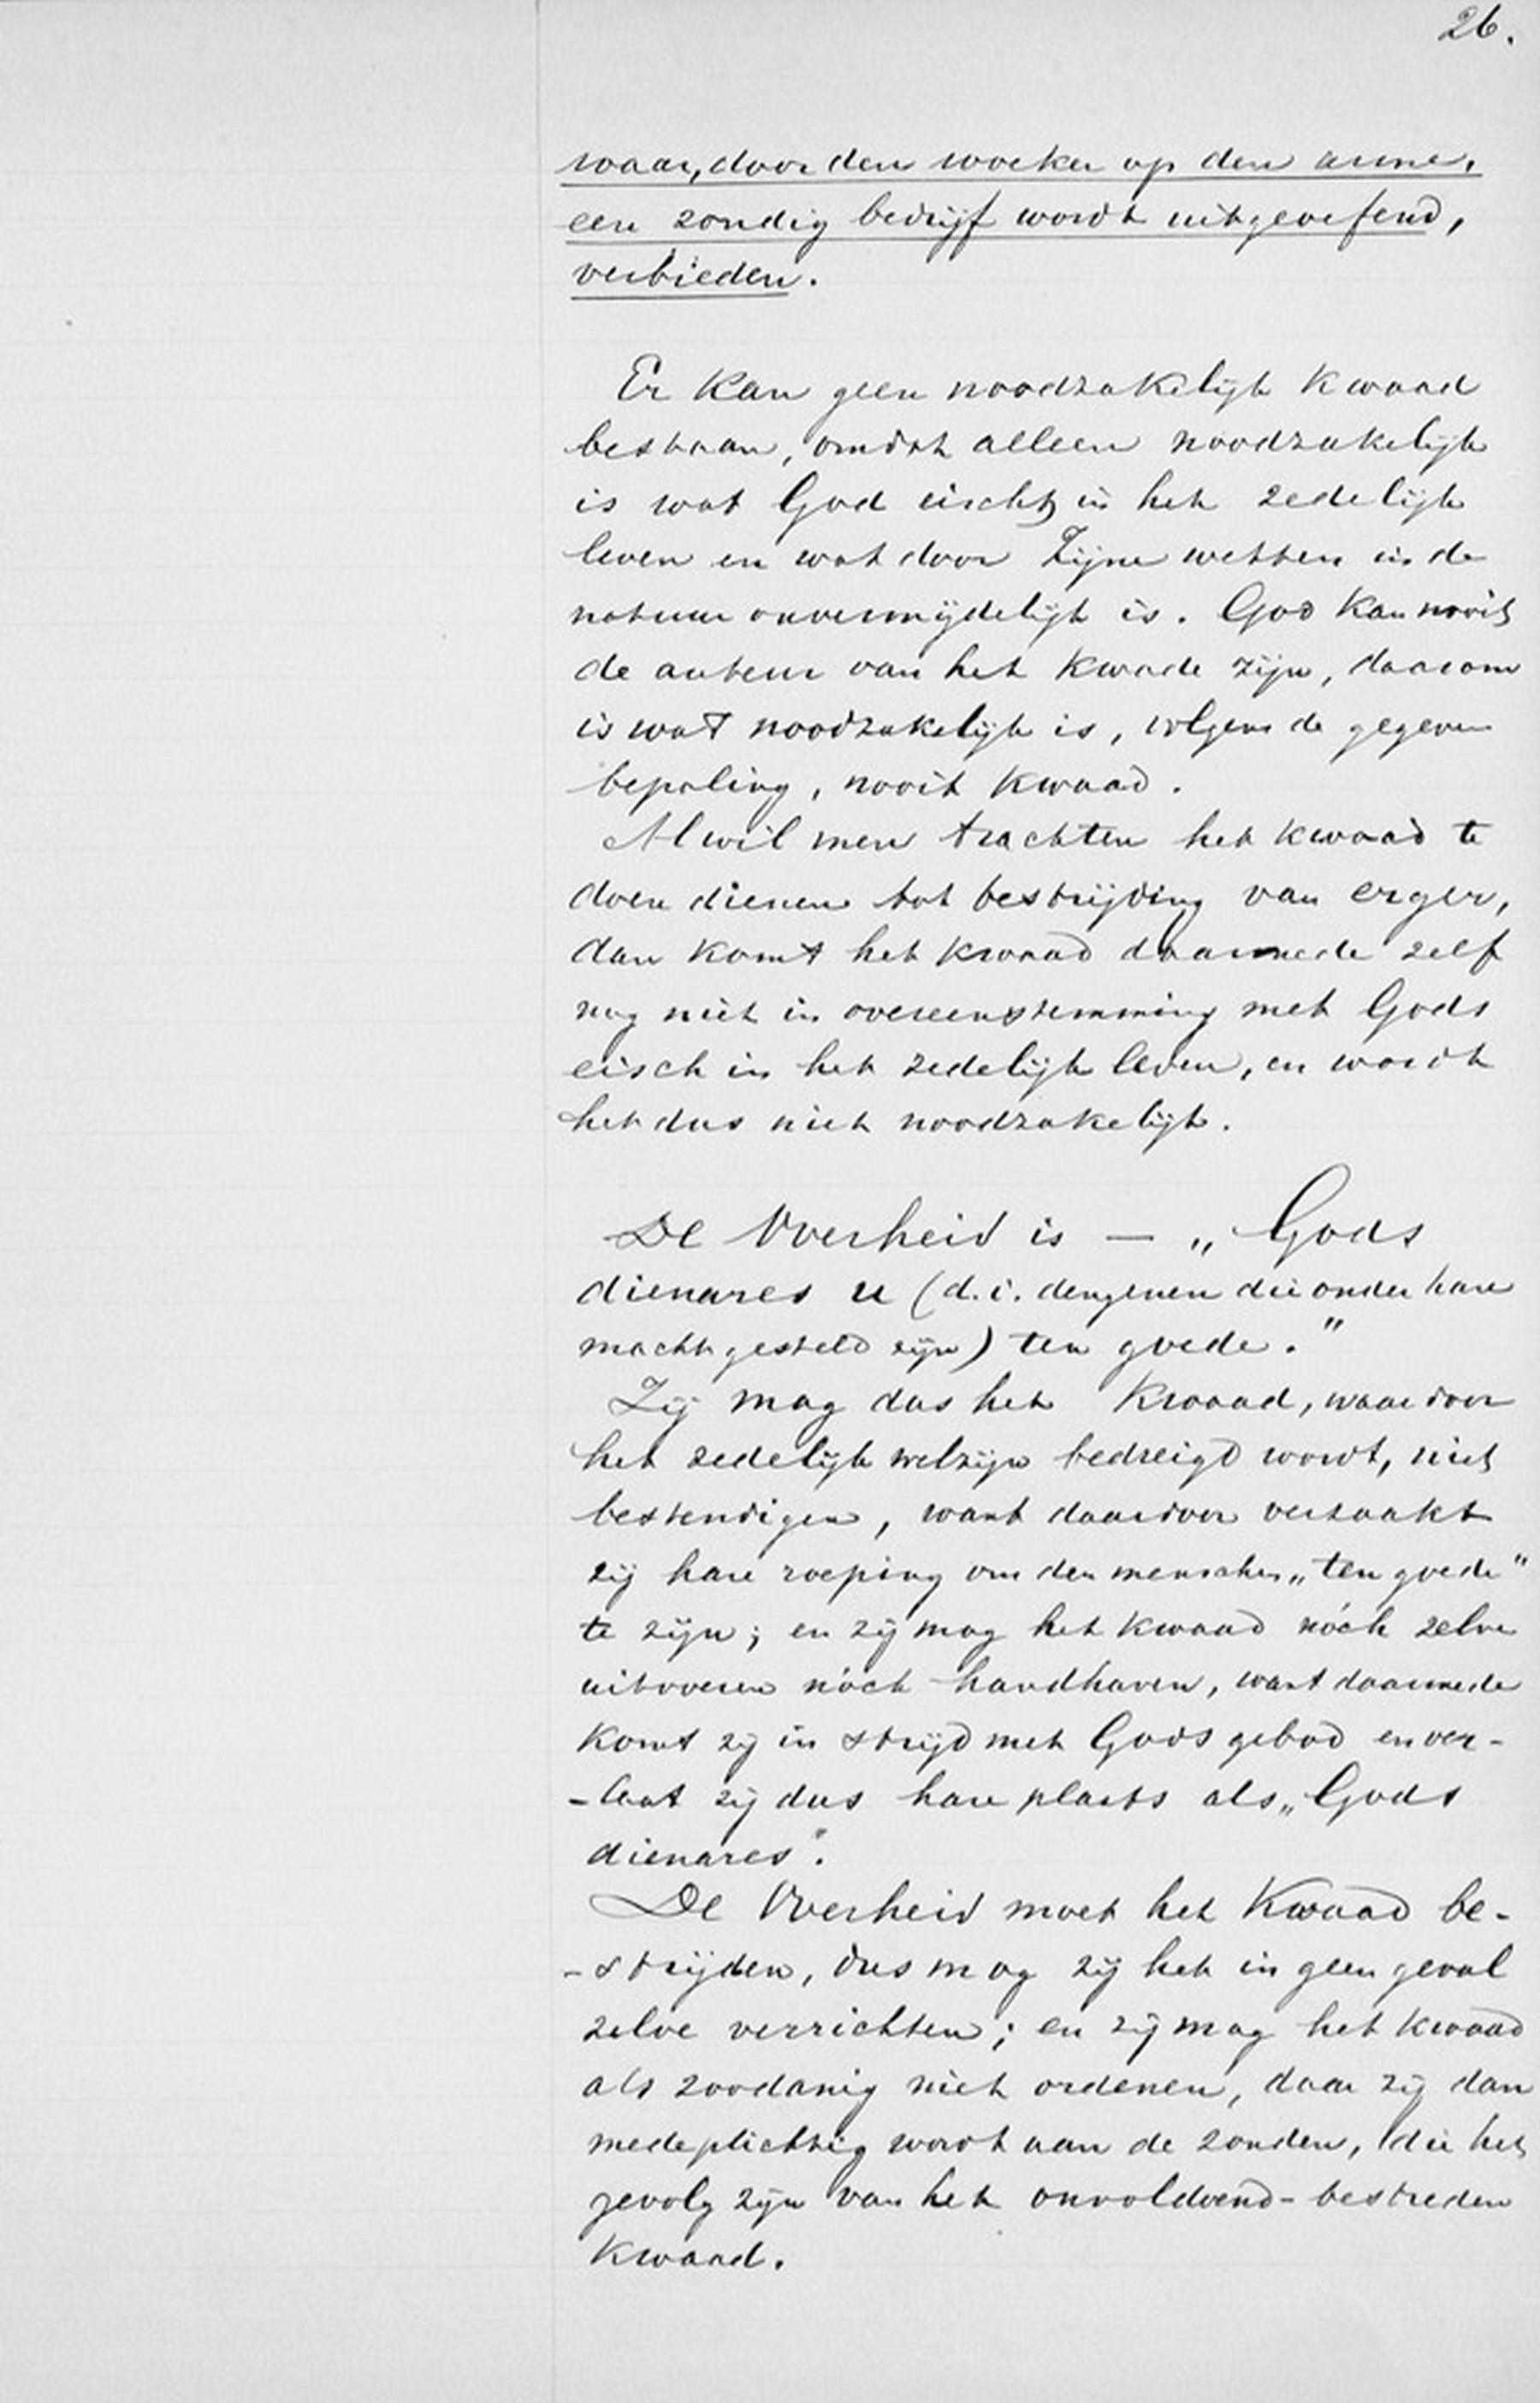 26.
waar, door den woeker op den arme,
een zondig bedrijf wordt uitgeoefend,
verbieden.
Er kan geen noodzakelijk kwaad
bestaan, omdat alleen noodzakelijk
is wat God eischt in het zedelijk
leven en wat door Zijne wetten in de
natuur onvermijdelijk is. God kan nooit
de auteur van het kwade zijn, daarom
is wat noodzakelijk is, volgens de gegeven
bepaling, nooit kwaad.
Al wil men trachten het kwaad te
doen dienen tot bestrijding van erger,
dan komt het kwaad daarmede zelf
nog niet in overeenstemming met Gods
eisch in het zedelijk leven, en wordt
het dus niet noodzakelijk.
De Overheid is — „Gods
dienares u (d.i. dengenen die onder hare
macht gesteld zijn) ten goede."
Zij mag dus het kwaad, waardoor
het zedelijk welzijn bedreigd wordt, niet
bestendigen, want daardoor verzaakt
zij hare roeping om den menschen „ten goede"
te zijn; en zij mag het kwaad nóch zelve
uitvoeren nóch handhaven, want daarmede
komt zij in strijd met Gods gebod en ver-
-laat zij dus hare plaats als „Gods
dienares".
De Overheid moet het kwaad be-
-strijden, dus mag zij het in geen geval
zelve verrichten; en zij mag het kwaad
als zoodanig niet ordenen, daar zij dan
medeplichtig wordt aan de zonden, die het
gevolg zijn van het onvoldoend-bestreden
kwaad.